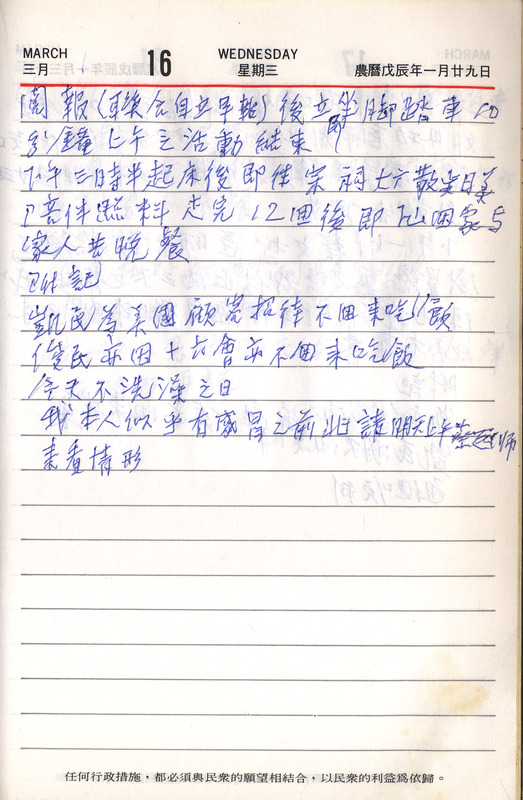 MARCH 16 WEDNESDAY
三月 星期三 農曆戊辰年一月廿九日
閱報(聯合自立早報)後立即腳踏車
分鐘上午之活動結束
下午三時半起床後即往宗祠大六散步日美
陪伴照料走完12回後即回家与
家人共晚餐
附記
凱民為美國顧客招待不回來吃飯
俊民亦因十六會亦不回來吃飯
今天不洗澡之日
我本人似乎有感冒之前兆請明天上午蔡医師
來看情形
任何行政措施，都必須與民衆的願望相結合，以民衆的利益爲依歸。